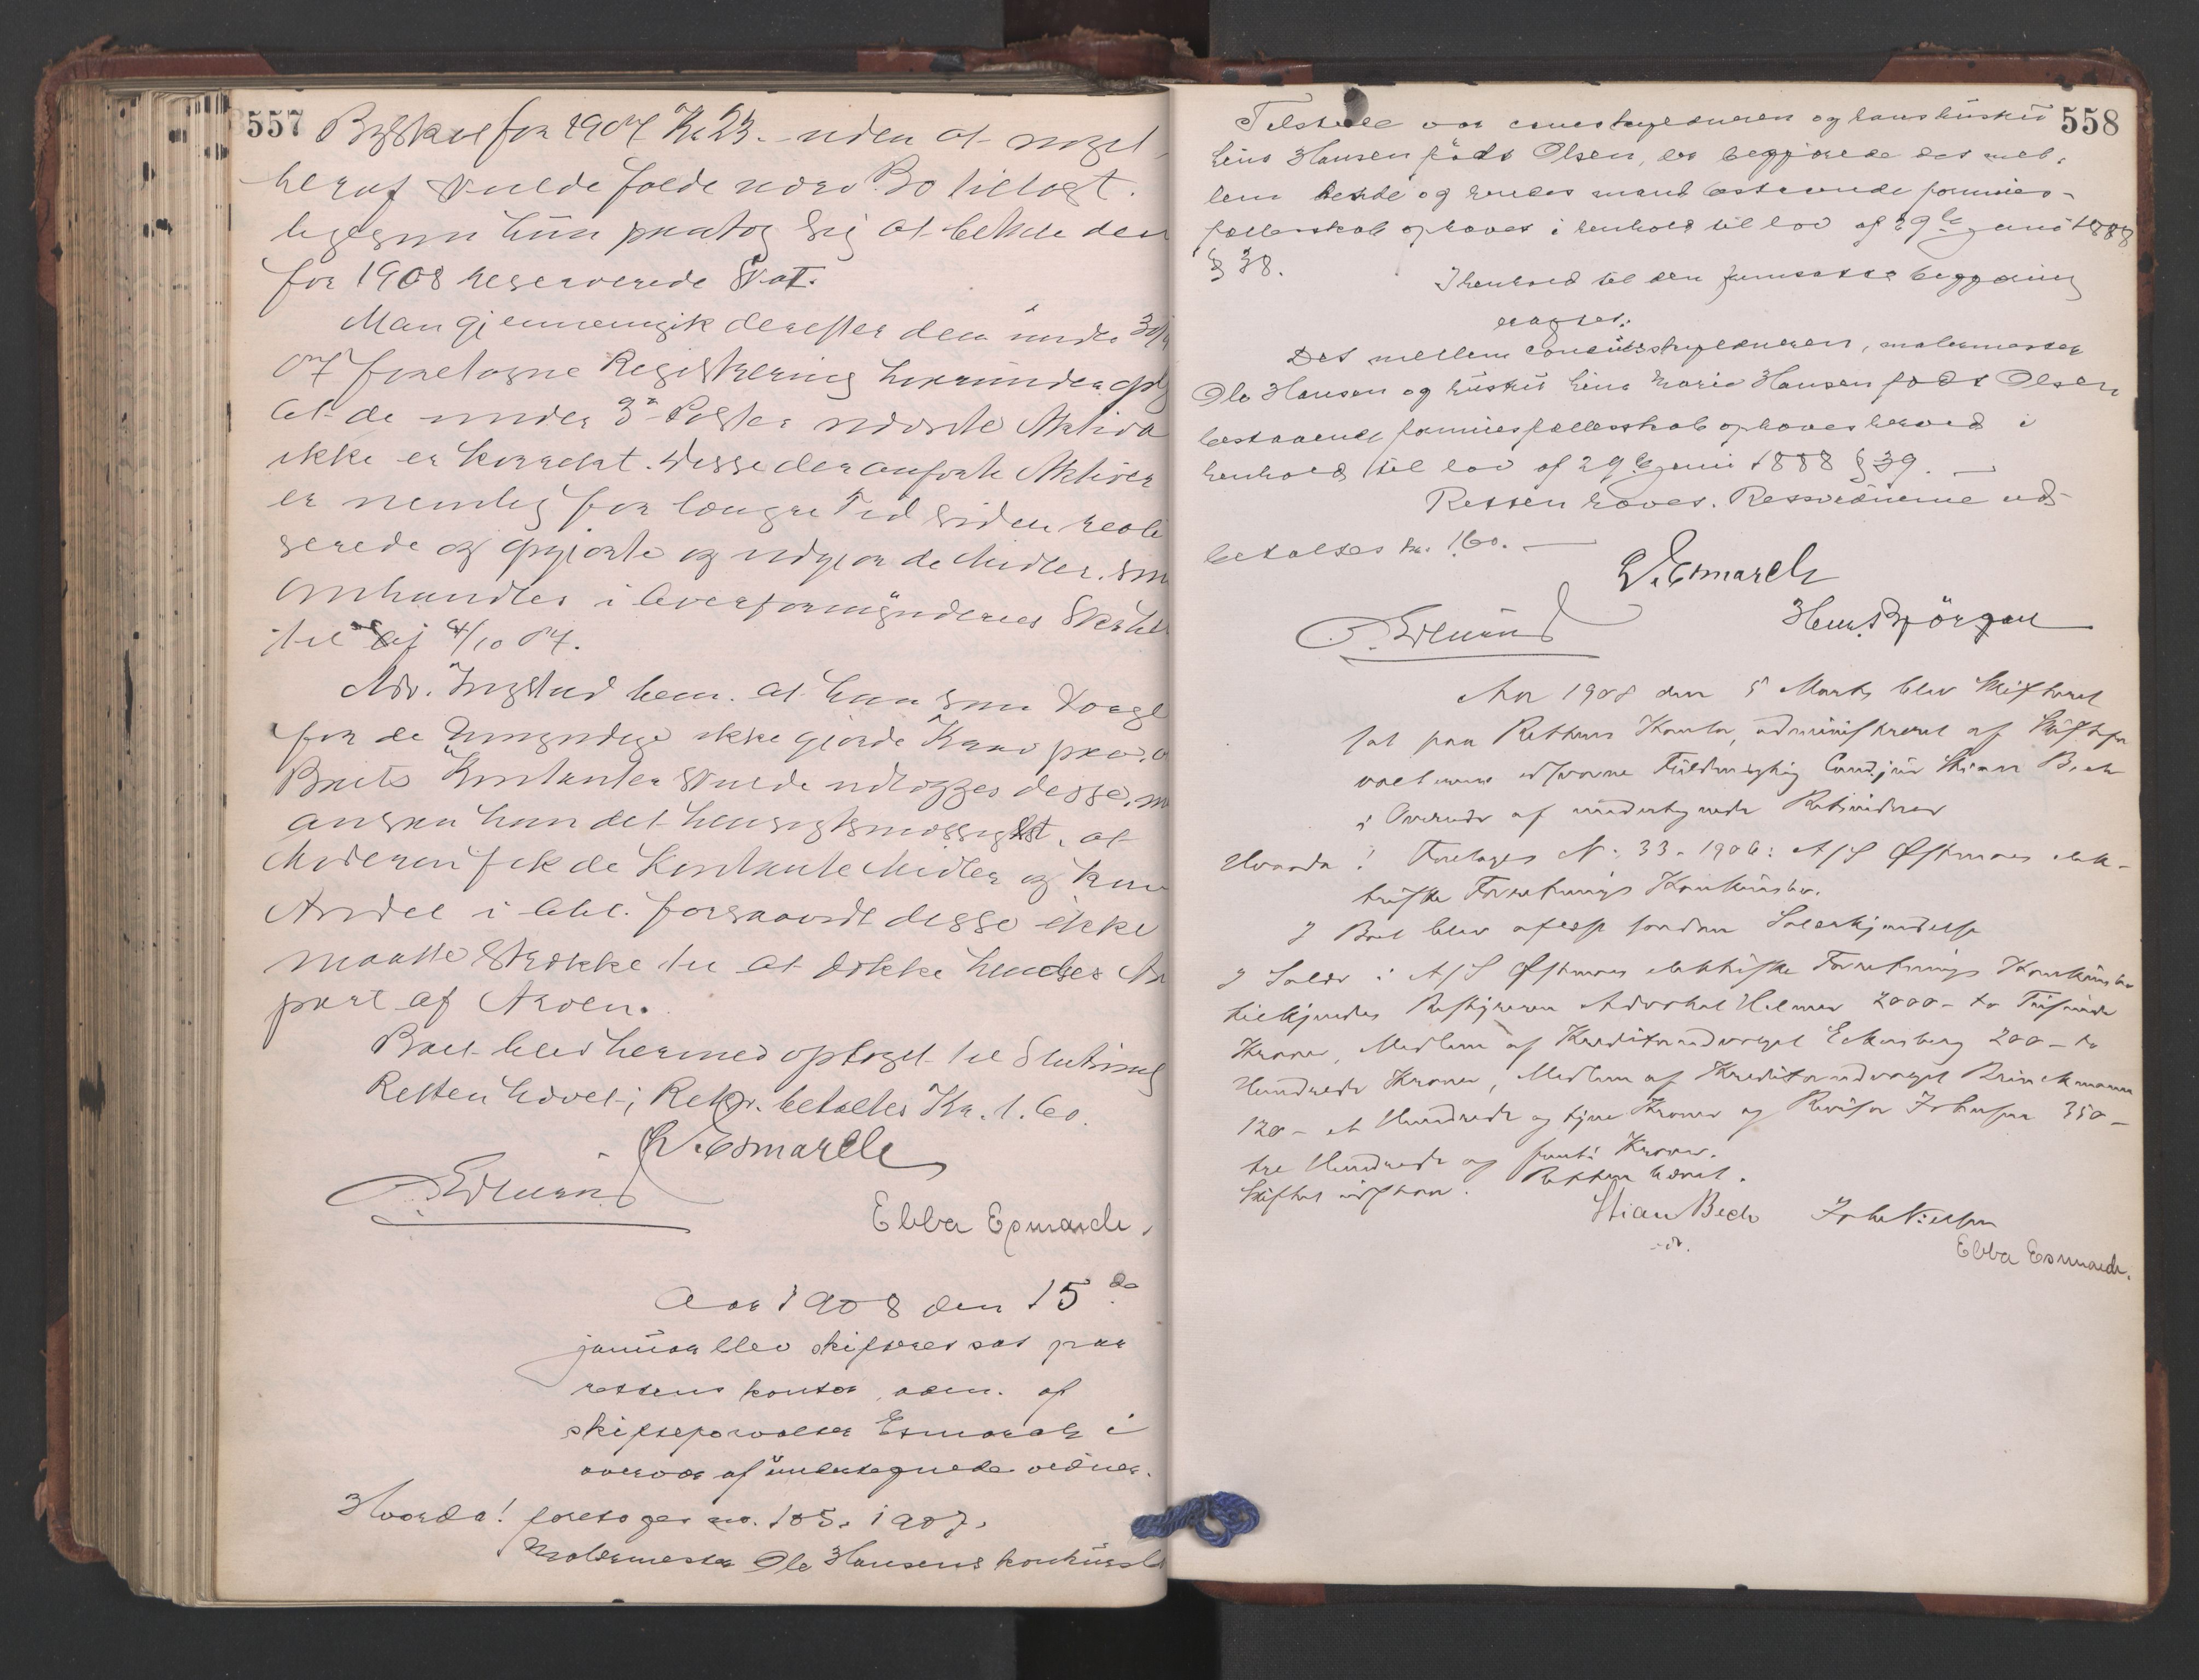 557
Byskat for 1907 Kr 23. - uden at noget
heraf skulde falde nærv. Bo til last.
ligesom hun paatog sig at betale den
for 1908 reserverede Skat.
Man gjennemgik derefter den under 30/
07 foretagne Registrering hvorunder opl
at de under 3die Poster nævnte Aktiva
ikke er korrekt. Disse der anførte Aktiver
er nemlig for længre Tid siden reali
serede og opgjorte og udgjør de Midler. som
omhandles i Overformynderiets Skrivelse
til af 4/10 07.
Adv. Ingstad bem. at han som Værge
for de Umyndige ikke gjorde Krav paa, at
Boets Kontanter skulde udlægges disse, m
ansaa han det hensigtsmæssigst, at
Moderen fik de kontante Midler og kun
Andel i forsaavidt disse ikke
maatte strække til at dække hendes An
part af Arven.
Boet blev hermed optaget til Slutning
Retten hævet; Retsv. betaltes Kr. 1.60.
L. Esmarch
Ebba Esmarch.
Aar 1908 den 15de
januar blev skifteret sat paa
rettens kontor, adm. af
skifteforvalter Esmarch i
overvær af undertegnede vidner.
Hvorda! foretoges no. 105. 1907.
Malermester Ole Hansens konkursbo
558
Tilstede var og hans hustru
Lina Hansen født Olsen, der begjærede det mel-
lem hende og hendes mand bestaaende formues-
fællesskab ophævet i henhold til lov af 29de juni 1888
§ 38.
I henhold til den fremsatte begjæring
Det mellem konkursskyldneren, malermester
Ole Hansen og hustru Lina Marie Hansen født Olsen
bestaaende formuesfællesskab ophæves herved i
henhold til lov af 29de juni 1888 § 39. —
Retten hævet. Retsvidnerne ud-
betaltes kr. 1.60. —
L. Esmarch
Aar 1908 den 5 Marts blev Skifteret
sat paa Rettens Kontor, administreret af Skiftefor
valterens edsvorne Fuldmægtig Cand. jur Stian Bech
i Overvær af undertegnede Retsvidner
Hvorda! Foretages N. 33. 1906: A/S Østmoes elek-
triske Forretnings Konkursbo.
I Boet blev afsagt saadan Salærkjendelse
I Salær i A/S Østmoes elektriske Forretnings Konkursbo
tilkjendes Bestyreren Advokat Hilmer 2000 - to Tusinde
Kroner, Medlem af Kreditorudvalget Eckersberg 200 - to
Hundrede Kroner, Medlem af Kreditorudvalget Brinchmann
120 - et Hundrede og tyve Kroner og Revisor Johnsen 350 -
tre Hundrede og femti Kroner.
Skiftet udsattes. Retten hævet.
Stian Bech Nielsen
Ebba Esmarch.